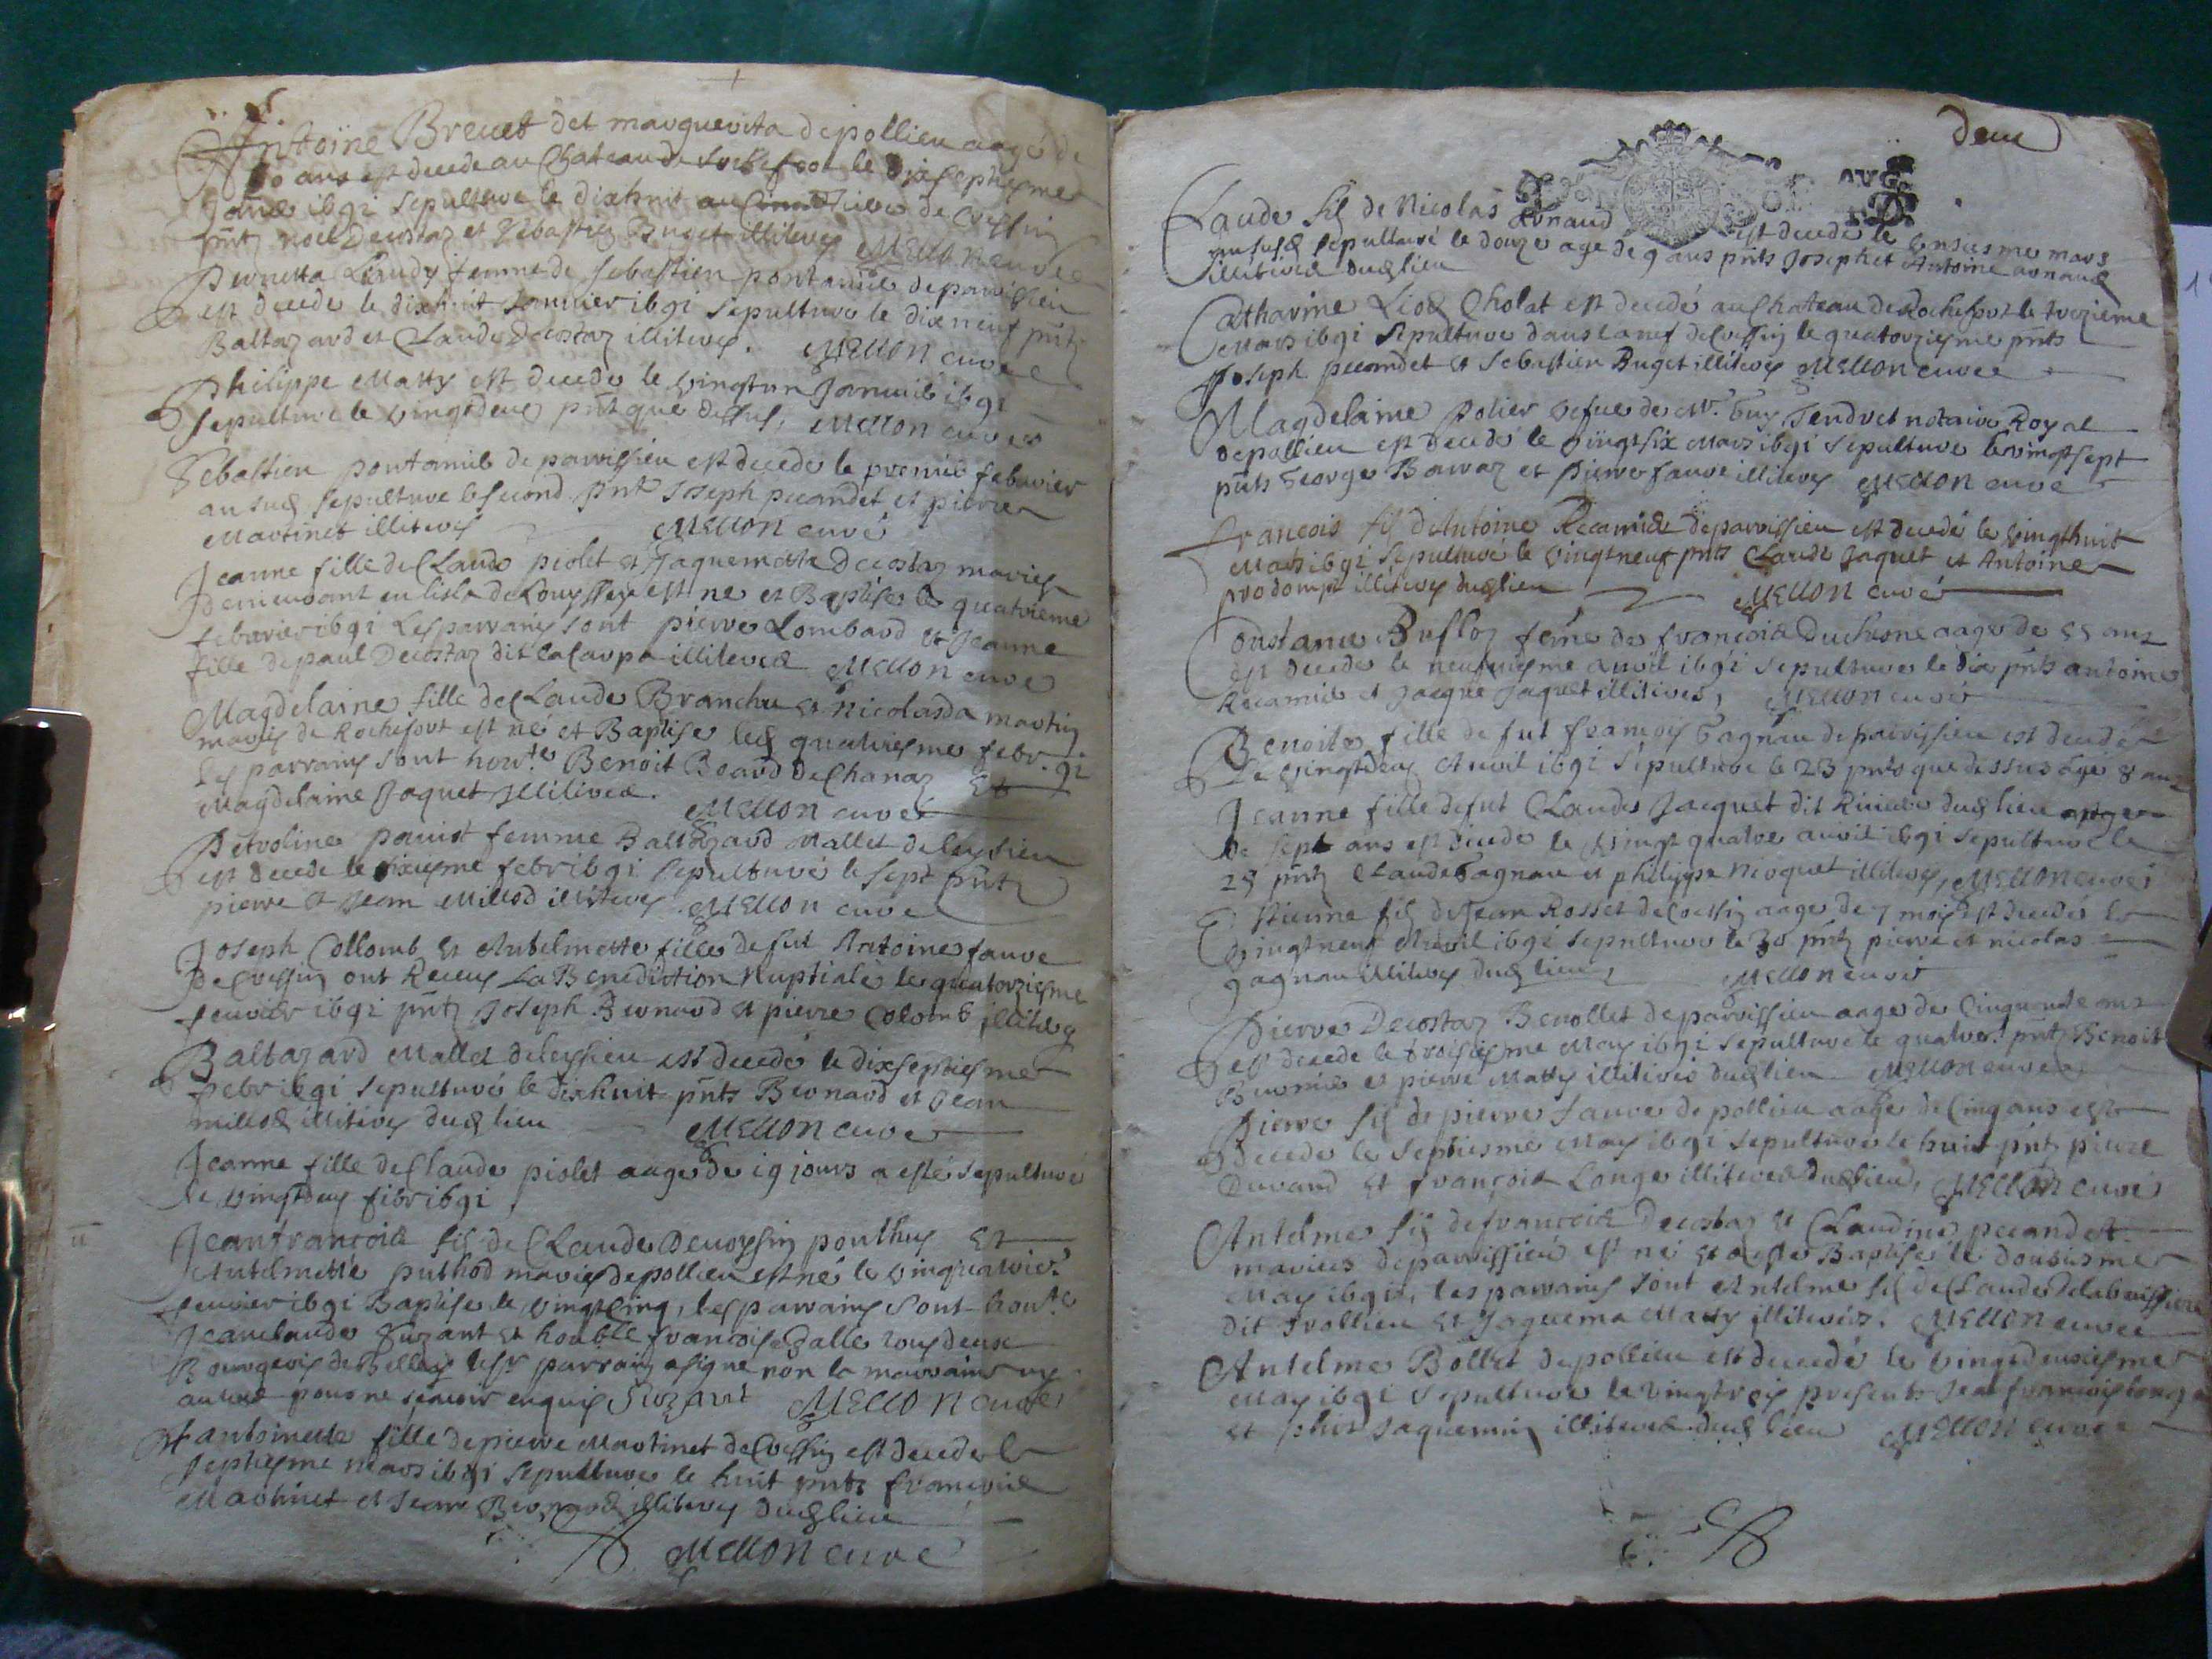 Antoine Brevet det marguerita de pollieu aagé de
ans est decede au Chateau de Rochefort le dixseptiesme
ibgi sepulturé le dixhuit au Cimetiere de Cressin
pnts noel Decostaz et Sebastien Buget illiterez Mellon curé
Pernetta femme de Sebastien pontanier de parvissieu
est decede le dixhuit Janvier ibgi sepulturé le dixneuf pnts
Baltazard et Claude Decostaz illiterez. Mellon curé
Philippe Matty est decede le vingtun Janvier ibgi
sepulturé le vingtdeux pnt que dessus, Mellon curé
Sebastien pontanier de parvissieu est decede le premier febvrier
an sud sepulturé le second pnt Joseph pecandet et pierre
Martinet illiterez Mellon curé
Jeanne fille de Claude piolet et Jaquemetta Decostaz mariez
demeurant en lisle de est né et Baptisé le quatrieme
febvrier ibgi Les parrains sont pierre Lombard et Jeanne
fille de paul Decostaz dit illiterez Mellon curé
Magdelaine fille de Claude Branchu et Nicolarda martin
mariez de Rochefort est né et Baptisé led quatriesme febr. gi
les parrains sont hon.te Benoit Beard de Chanaz Et
Magdelaine Jaquet illiterez. Mellon curé
Petroline femme Baltazard Mallet de leyssieu
est decede le sixiesme febr ibgi sepulturé le sept pnts
pierre et Jean Milliod illiterez Mellon curé
Joseph Collomb et Antelmette fille de fut Antoine favre
de Cressin ont Receus La Benediction Nuptiale le quatorziesme
feuvier ibgi pnts Joseph Bernard et pierre Colomb illiterez
Baltazard Mallet de leyssieu est decedé le dixseptiesme
febr ibgi sepulturé le dixhuit pnts Bernard et Jean
milliod illiterez dud lieu Mellon curé
Jeanne fille de Claude piolet aagé de ig jours a esté sepulturé
le vingtdeux febr ibgi
Jeanfrancois fils de Claude Devoysin ponthus Et
Antelmette puthod mariez de pollieu est né le vinquatrie.
feuvrier ibgi Baptisé le vingtcinq, les parrains sont hon.te
Jeanclaude Suzant et hon.ble francoise Dalle tous deux
Bourgeois de Belley ledt parrain a signé non la marraine ny
autre pour ne scavoir enquis Suzant Mellon curé
antoinette fille de pierre Martinet de Cressin est decede le
septiesme mars ibgi sepulturé le huit pnts francois
Martinet et Jean Bernard illiterez dud lieu
Mellon curé
deux
Claude fils de Nicolas Arnaud est decede le onsiesme mars
an susd sepulturé le douze agé de 9 ans pnts Joseph et Antoine arnaud
illiterez dud lieu
Catharine Liod Cholat est decedé au Chateau de Rochefort le trezieme
Mars ibgi sepulturé dans la nef de Cressin le quatorziesme pnts
Joseph pecandet et Sebastien Buget illiterez Mellon curé
Magdelaine polier vefue de Mr. Guy Gendret notaire Royal
de pollieu est decedé le vingtsix Mars ibgi sepulturé le vingtsept
pnts George Barraz et pierre favre illiterez Mellon curé
francois fils d'Antoine Recamier de parvissieu est decedé le vingthuit
Mars ibgi sepulturé le vingtneuf pnts Claude Jaquet et Antoine
prodompt illiterez dud lieu Mellon curé
Constance Buffoz feme de francois Duchene aage de 55 ans
est decede le neuviesme avril ibgi sepulturé le dix pnts antoine
Recamier et Jacque Jaquet illiterez, Mellon curé
Benoite fille de fut francois Gagnau de parvissieu est decedé
le vingtdeux Avril ibgi sepulturé le 23 pnts que dessus agé 8 ans
Jeanne fille de fut Claude Jacquet dit Riviere dud lieu agé
de sept ans est decede le vingt quatre avril ibgi sepulturé le
25 pnts Claude Gagnau et philippe Nioquet illiterez, Mellon curé
Estienne fils de Jean Rosset de Cressin aage de 7 mois est decedé le
vingtneuf Avril ibgi sepulturé le 30 pnts pierre et nicolas
gagnau illiterez dud lieu, Mellon curé
Pierre Decostaz Benollet de parvissieu aage de Cinquante ans
est decede le troisiesme May ibgi sepulturé le quatre. pnts Benoit
et pierre Matty illiterez dud lieu Mellon curé
Pierre fils de pierre favre de pollieu aage de Cinq ans est
decede le septiesme May ibgi sepulturé le huit pnts pierre
Durand et francois Longe illiterez dud lieu, Mellon curé
Antelme fils de francois Decostaz et Claudine pecandet
mariez de parvissieu est né et a esté Baptisé le dousiesme
May ibgi, les parrains sont Antelme fils de Claude Delabuissiere
dit Trollieu et Jaquema Matty illiterez. Mellon curé
Antelme Bollet de pollieu est decedé le vingtdeuxiesme
May ibgi sepulturé le vingtrois presents Jean francois longe
et Jaquemin illiterez dud lieu Mellon curé